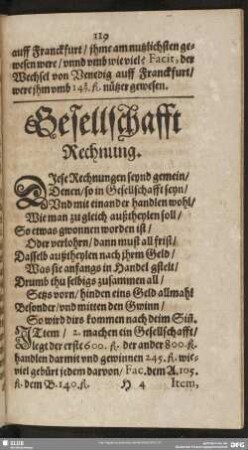 119
auff Franckfurt / ihme am nutzlichsten ge-
wesen were / vnnd vmb wie viele Facit, der
Wechsel von Venedig auff Franckfurt /
were jhm vmb fl. nützer gewesen.
Gesellschafft
Rechnung.
Diese Rechnungen seynd gemein /
Denen / so in Gesellschafft seyn /
Vnd mit einander handlen wohl /
Wie man zugleich außtheylen soll /
So etwas gwonnen worden ist /
Oder verlohrn / dann must all frist /
Dasselb außtheylen nach jhrem Geld /
Was sie anfangs in Handel gstelt /
Drumb thu selbigs zusammen all /
Setzs vorn / hinden eins Geld allmahl
Besonder / vnd mitten den Gwinn /
So wird dirs kommen nach deim Siñ.
ITtem / 2. machen ein Gesellschafft /
legt der erste 600. fl. der ander 800. fl.
handlen darmit vnd gewinnen 245. fl. wie-
viel gebürt jedem darvon / Fac. dem A. 105.
fl. dem B. 140. fl. H 4 Item,